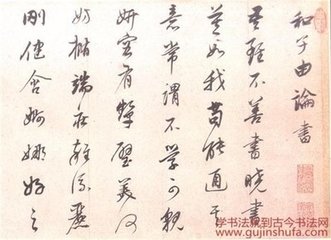 和子由論書
吾雖不善書曉書
莫如我苟能通其
意常謂不學可貌
妍容有顰璧美何
妨橢端莊雜流麗
剛健含婀娜好之
学书法就到古今书法网
www.gujinshufa.com